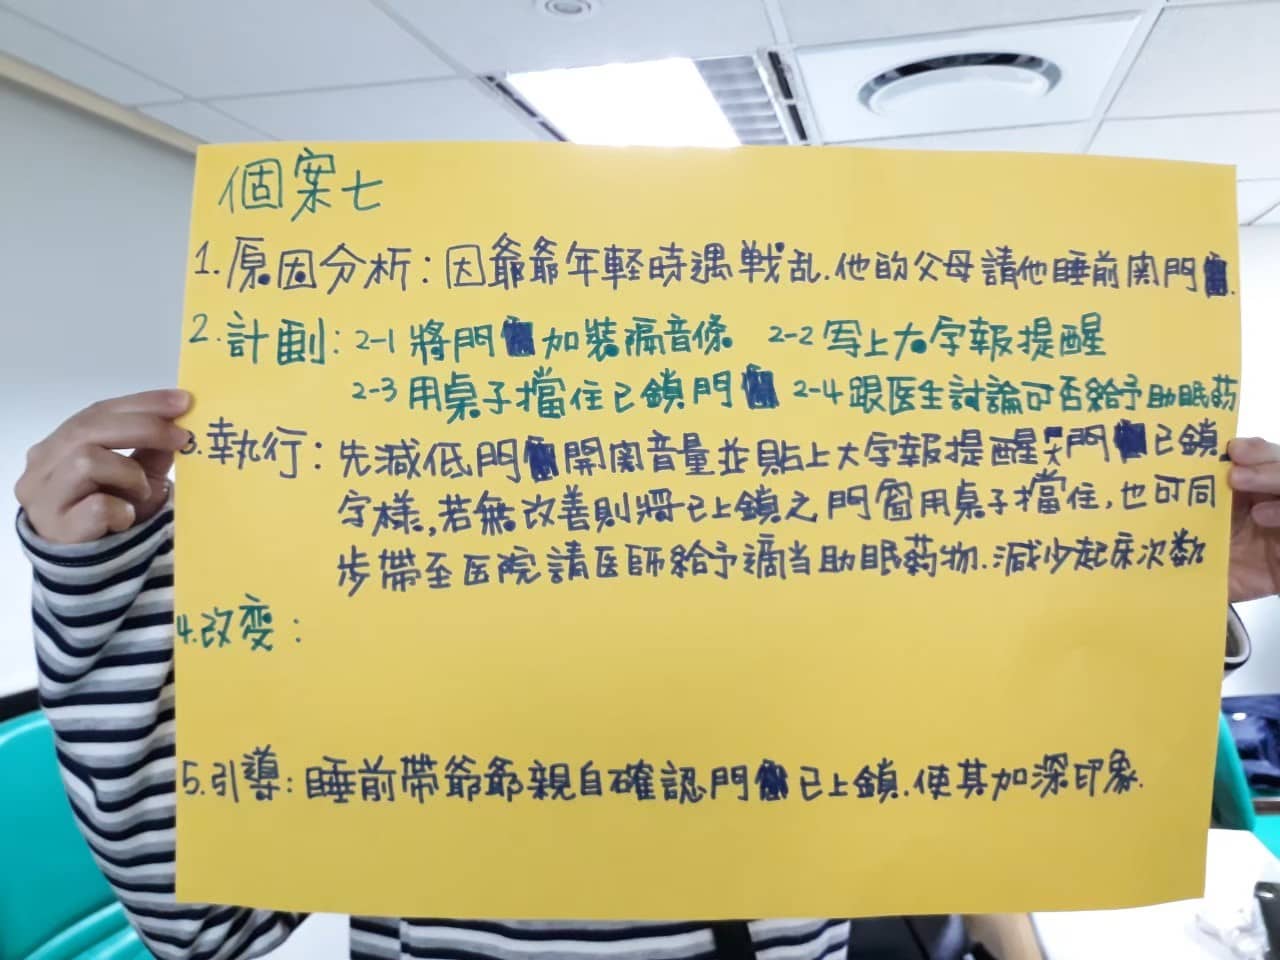 個案七
1.原因分析:因爺爺年軽時遇戦乱.他的父母請他睡前関門.
2.計劃:2-1 將門加裝隔音條 2-2 写上大字報提醒
2-3 用桌子擋住已鎖門 2-4 跟医生討論可否給予助眠葯
3.執行:先減低門開関音量並貼上大字報提醒"門已鎖"
字樣,若無改善則將已上鎖之門窗用桌子擋住,也可同
步帶至医院請医師給予適当助眠葯物.減少起床次数
4.改变:
5.引導:睡前帶爺爺親自確認門已上鎖.使其加深印象.